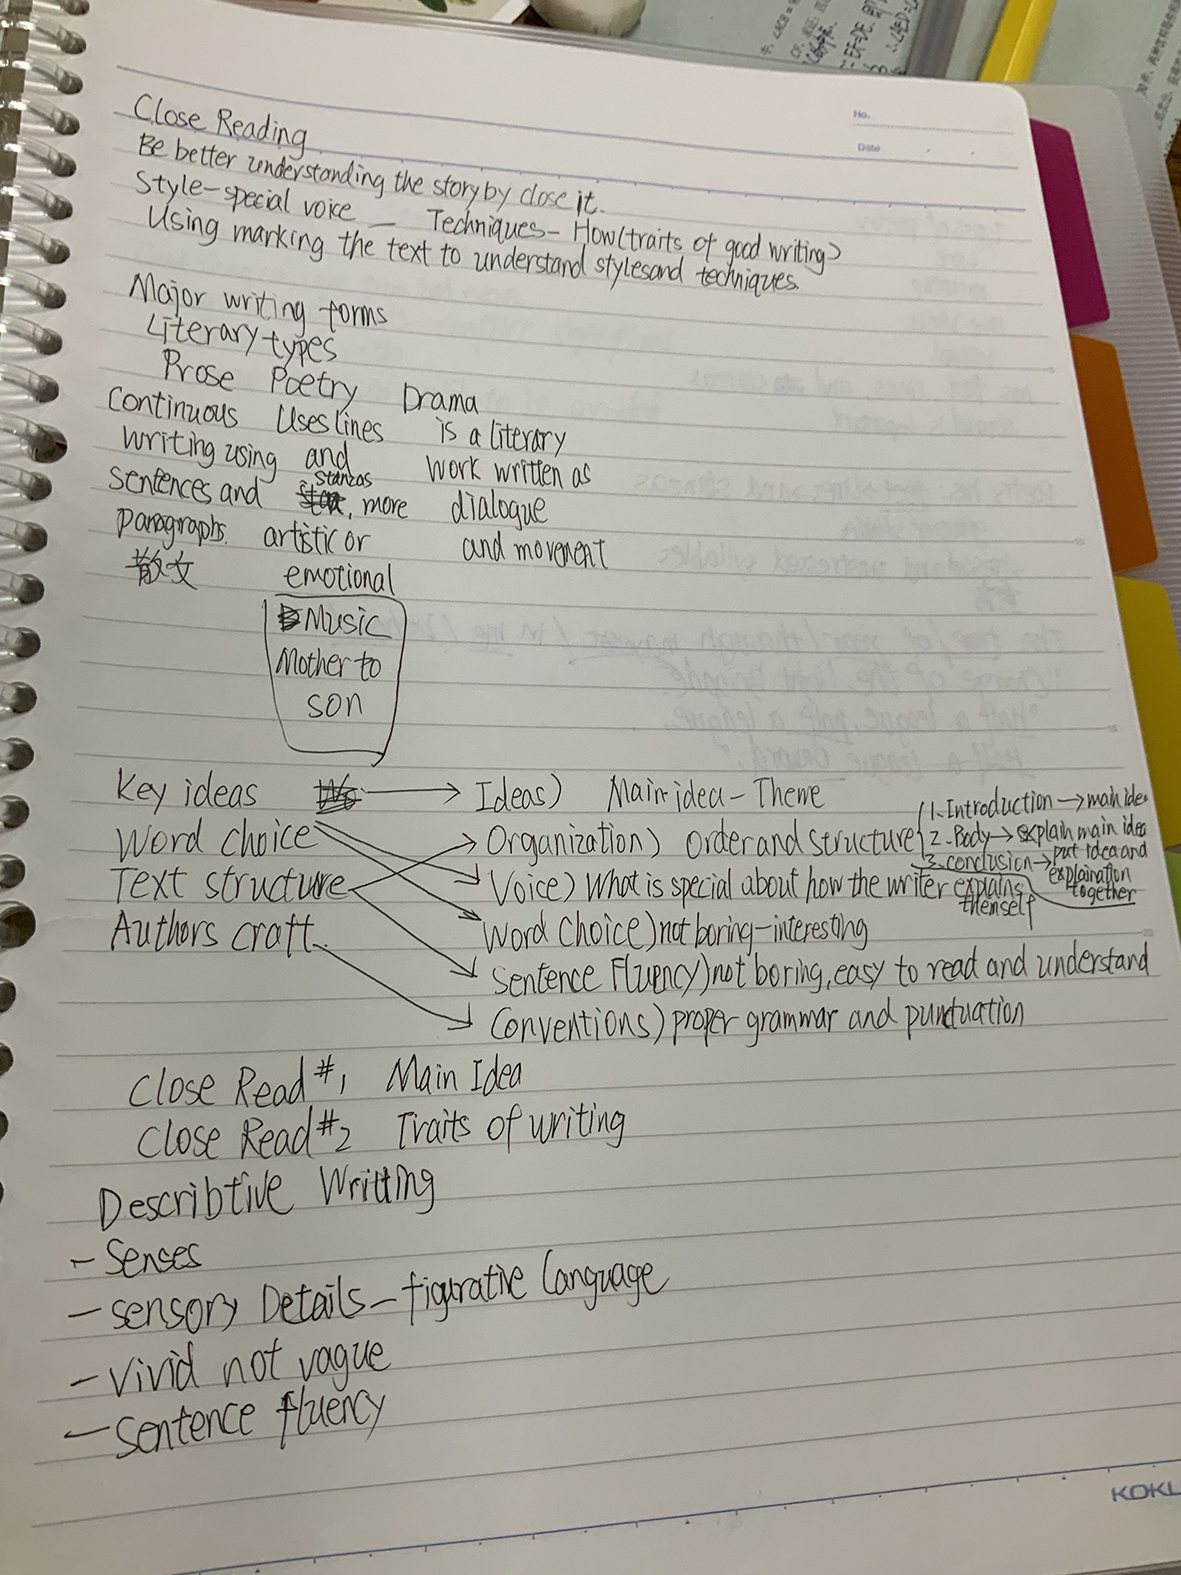 No.
Date
Close Reading
Be better understanding the story by close it.
Style-special voice — Techniques-How(traits of good writing)
Using marking the text to understand styles and techniques.
Major writing forms
Literary types
Prose Poetry Drama
Continuous Uses lines is a literary
writing using and work written as
sentences and stanzas, more dialogue
paragraphs. artistic or and movement
散文 emotional
Music
Mother to
son
Key ideas → Ideas) Main idea - Theme
Word choice Organization) Order and structure
1. Introduction → main idea
2. Body → explain main idea
3. conclusion → put idea and
explaination
together
Text structure Voice) What is special about how the writer explains
themself
Authors craft. Word Choice) not boring-interesting
Sentence Fluency) not boring, easy to read and understand
Conventions) proper grammar and punctuation
Close Read #1 Main Idea
Close Read #2 Traits of writing
Describtive Writting
- Senses
- Sensory Details - figurative language
- Vivid not vague
- Sentence fluency